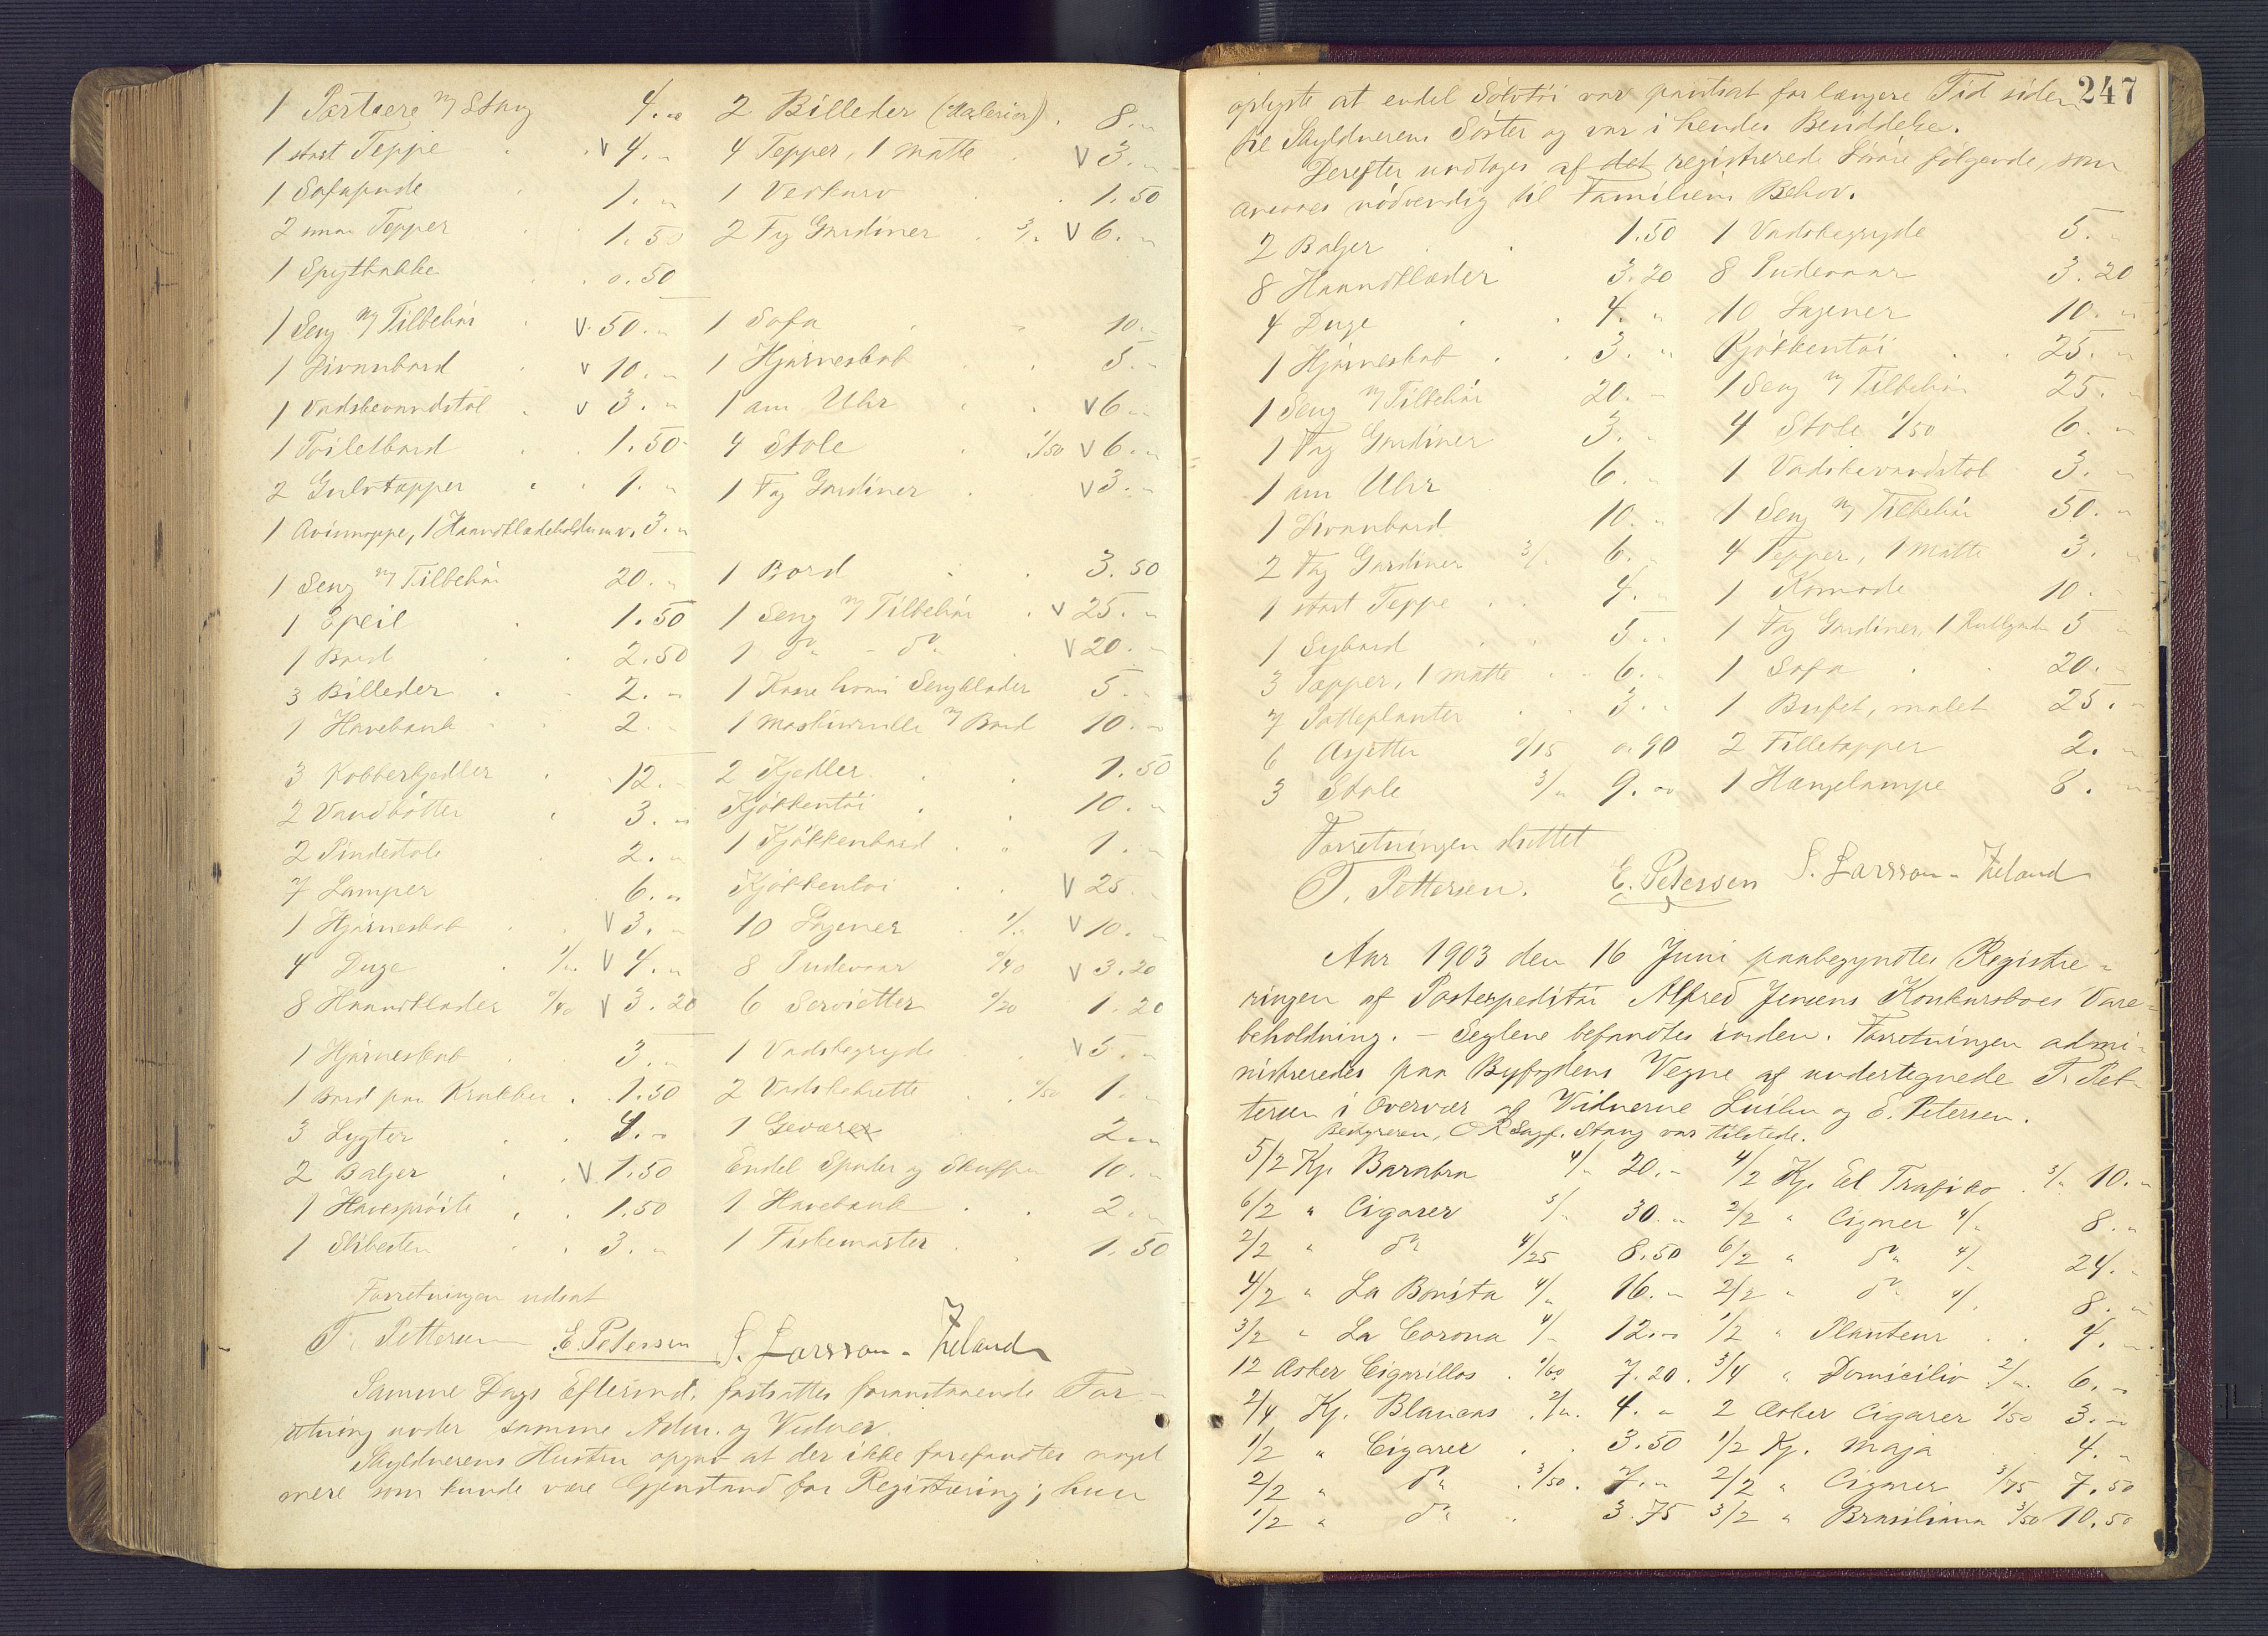 1 Portiere m/ Stang 4. „ 2 Billeder (Malerier) . 8. „
1 stort Teppe . . V 4. „ 4 Tepper, 1 Matte . V 3. „
1 Sofapude . 1. „ 1 Vedkurv . . 1.50
2 smaa Tepper . . 1.50 2 Fag Gardiner . 3/„ V 6. „
1 Spytbakke . . 0.50
1 Seng m/ Tilbehör . V. 50. „ 1 Sofa . . 10. „
1 Divanbord . V 10. „ 1 Hjörneskab . . 5. „
1 Vadskevandstol . V 3. „ 1 am Uhr . . V 6 „
1 Toiletbord . . 1.50 4 Stole . 1/50 V 6. „
2 Gulvtepper . . 1. „ 1 Fag Gardiner . V 3. „
1 Avismappe, 1 Haandklædeholder m.v. 3. „
1 Seng m/ Tilbehör 20. „ 1 Bord . . 3.50
1 Speil . 1.50 1 Seng m/ Tilbehör . V 25. „
1 Bord . . 2.50 1 do - do . V 20. „
3 Billeder . . 2. „ 1 Kasse hvori Sengklæder 5. „
1 Havebænk . . 2. „ 1 Maskinrulle m/ Bord 10. „
3 Kobberkjedler . . 12. „ 2 Kjedler . . 1.50
2 Vandbötter . 3. „ Kjökkentöi . . 10. „
2 Pindestole . 2. „ 1 Kjökkenbord . . 1. „
7 Lamper . 6. „ Kjökkentöi . . V 25 „
1 Hjörneskab . . V 3. „ 10 Lagener . 1/„ V 10. „
4 Duge . 1/„ V 4. „ 8 Pudevaar 0/40 V 3.20
8 Haandklæder 0/40 V 3.20 6 Servietter 0/20 1.20
1 Hjörneskab . . 3. „ 1 Vadskegryde . . V 5. „
1 Bord paa Krakker . . 1.50 2 Vadskebrette . . 0/50 1. „
3 Lygter . . 4. „ 1 Gevær . 2. „
2 Baljer . . V 1.50 Endel Spader og Skuffer 10. „
1 Havespröite . . 1.50 1 Havebænk . . 2. „
1 Slibesten . . 3. „ 1 . . 1.50
Forretningen udsat
T. Pettersen E. Petersen S. Larsson-Zeland
Samme Dags Eftermd. fortsattes foranstaaende For-
retning under samme Adm. og Vidner.
Skyldnerens Hustru opgav at der ikke forefandtes noget
mere som kunde være Gjenstand for Registrering; hun
247
oplyste at endel Sölvtöi var pantsat for længere Tid siden
til Skyldnerens Söster og var i hendes Besiddelse.
Derefter undtoges af det registrerede Lösöre fölgende, som
ansaaes nödvendig til Familiens Behov.
2 Baljer . . 1.50 1 Vadskegryde 5. „
8 Haandklæder 3.20 8 Pudevaar 3.20
4 Duge . . 4. „ 10 Lagener 10. „
1 Hjörneskab . . 3. „ Kjökkentöi . . 25. „
1 Seng m/ Tilbehör 20. „ 1 Seng m/ Tilbehör 25. „
1 Fag Gardiner 3. „ 4 Stole 1/50 6. „
1 am Uhr 6. „ 1 Vadskevandstol 3. „
1 Divanbord 10. „ 1 Seng m/ Tilbehör 50. „
2 Fag Gardiner 3/„ 6. „ 4 Tepper, 1 Matte 3. „
1 stort Teppe . . 4. „ 1 Komode 10. „
1 Sybord . . 5. „ 1 Fag Gardiner, 1 5 „
3 Tæpper, 1 matte . . 6. „ 1 Sofa . . 20. „
7 Potteplanter . . 3. „ 1 Bufet, malet 25. „
6 Asjetter 0/15 0.90 2 Filletæpper 2. „
3 Stole 3/„ 9. „ 1 Hængelampe 8. „
Forretningen sluttet
T. Pettersen. E. Petersen S. Larsson-Zeland
Aar 1903 den 16 Juni paabegyndtes Registre-
ringen af Postexpeditör Alfred Jensens Konkursboes Vare-
beholdning. - Seglene befandtes iorden. Forretningen admi-
nistreredes paa Byfogdens Vegne af undertegnede T. Pet-
tersen i Overvær af Vidnerne og E. Petersen.
Bestyreren, O.R.Sagf. Stang var tilstede.
5/2 Kg. Barabra 4/„ 20. „ 4/2 Kg. El Trafico . 3/„ 10. „
6/2 „ Cigarer 5/„ 30. „ 2/2 „ Cigarer 4/„ 8. „
2/2 „ do 4/25 8.50 6/2 „ do 4/„ 24. „
4/2 „ La Bonita 4/„ 16. „ 2/2 „ do 4/„ 8. „
3/2 „ La Corona 4/„ 12. „ 1/2 „ Planteur . . 4. „
12 Æsker Cigarillos . 0/60 7.20. 3/4 „ Domicilio 2/„ 6. „
2/4 Kg. Blancas . 2/„ 4. „ 2 Æsker Cigarer 1/50 3. „
1/2 „ Cigarer . . 3.50 1/2 Kg. Maja . . 4. „
2/2 „ do . 3/50 . 7. „ 2/2 „ Cigarer 3/75 7.50
1/2 „ do . 3.75 3/2 „ Brasiliana 3/50 10.50